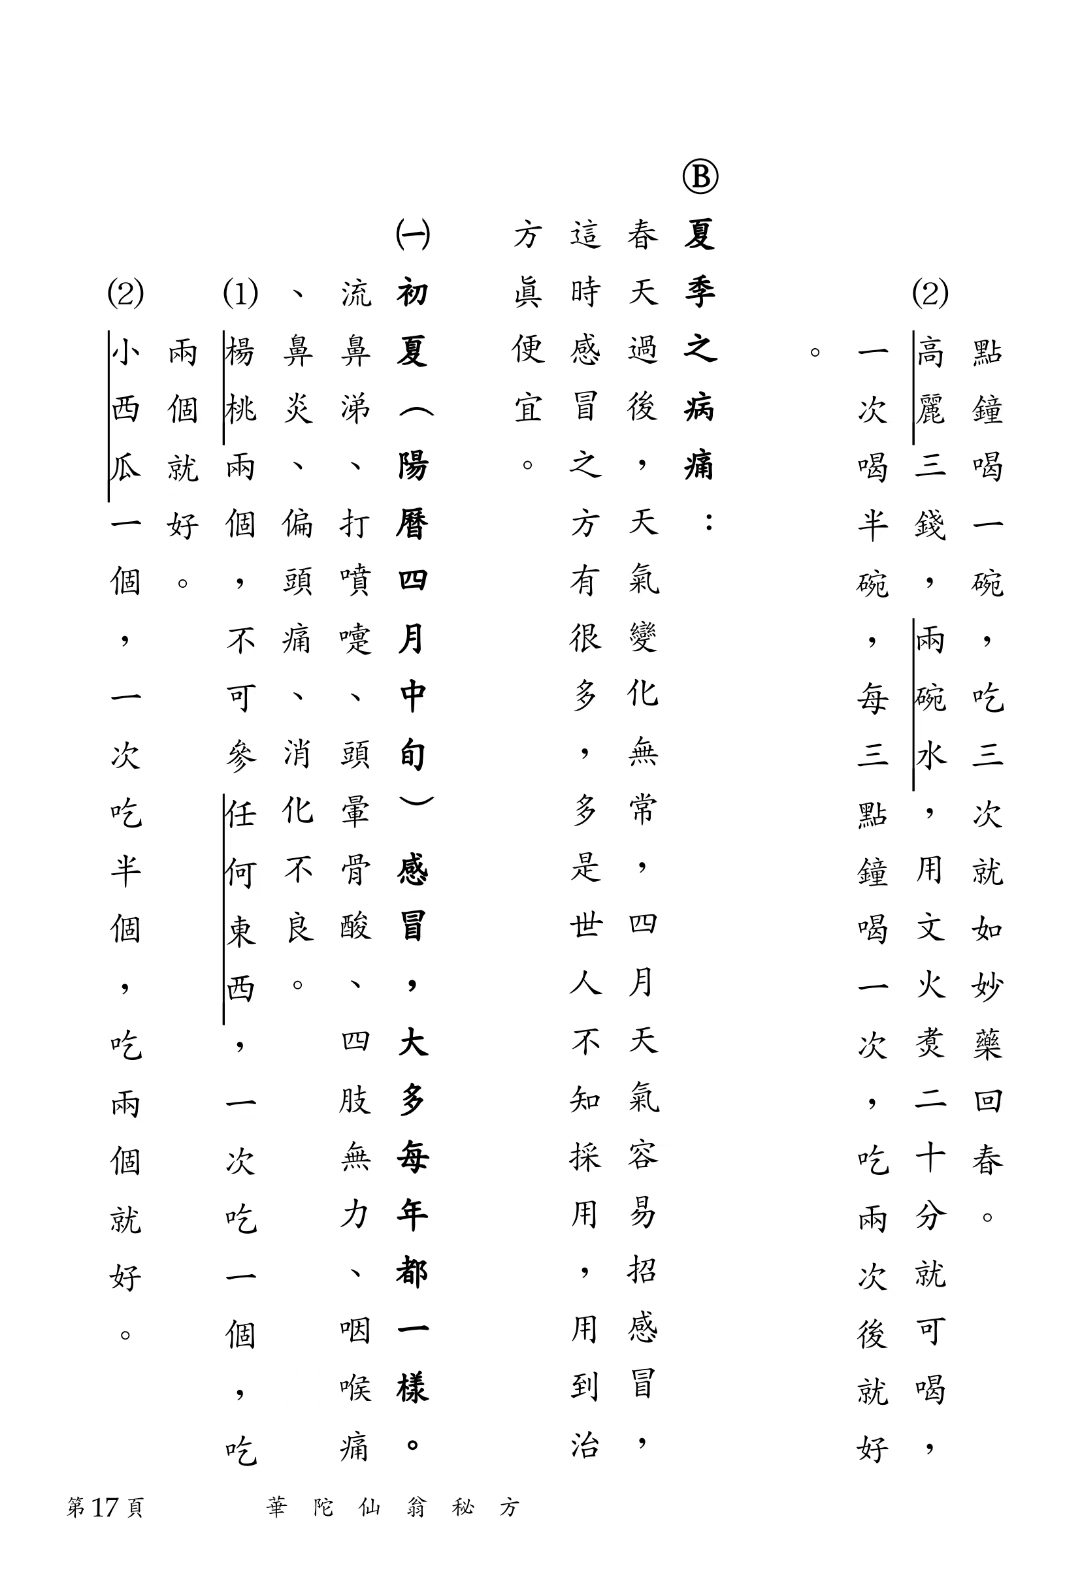 點鐘喝一碗，吃三次就如妙藥回春。
⑵高麗三錢，兩碗水，用文火煮二十分就可喝，
一次喝半碗，每三點鐘喝一次，吃兩次後就好
。
Ⓑ夏季之病痛：
春天過後，天氣變化無常，四月天氣容易招感冒，
這時感冒之方有很多，多是世人不知採用，用到治
方眞便宜。
㈠初夏（陽曆四月中旬）感冒，大多每年都一樣。
流鼻涕、打噴嚏、頭暈骨酸、四肢無力、咽喉痛
、鼻炎、偏頭痛、消化不良。
⑴楊桃兩個，不可參任何東西，一次吃一個，吃
兩個就好。
⑵小西瓜一個，一次吃半個，吃兩個就好。
第17頁 華陀仙翁秘方